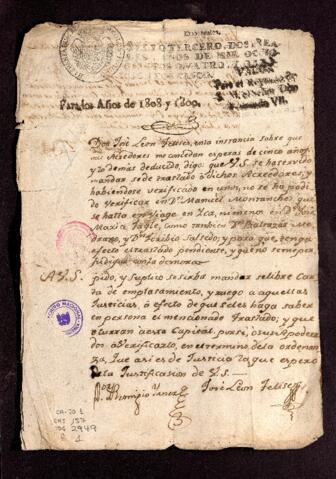 SELLO TERCERO, DOS REA
LES, AÑOS DE MIL OCHO
Y CINCO.
VALGA
Para el Reynado de
Fernando VII.
Para los Años de 1808 y 1809.
Don José Leon Feliser, en la instancia sobre que
mis Acredores me concedan esperas de cinco años,
y lo demas deducido, digo: que V.S. se ha servido
mandar se de traslado à dichos Acredores, y
habiendose verificado en uno, no se ha podi
do verificar en Dn. Manuel Montanches que
se halla en viage en Ica, ni menos en Dn. José
Maria Tagle, como tambien Dn. Baltazar Me
drano, y Dn. Toribio Salcedo; y para que tenga
efecto el traslado pendiente, y que no se me per
judique con la demora
A V.S. pido, y suplico se sirba mandar se libre Car
ta de emplasamiento, y ruego a aquellas
Justicias, à efecto de que se les haga saber
en persona el mencionado traslado; y que
ocurran a esta Capital por si, o sus Apodera
dos à verificarlo, en el termino de la ordenan
za, Que asi es de Justicia la que espero
de la Justificasion de V.S.
José Leon Feliser
CA-JO 1
CAJ 157
DOC 2949
f. 1